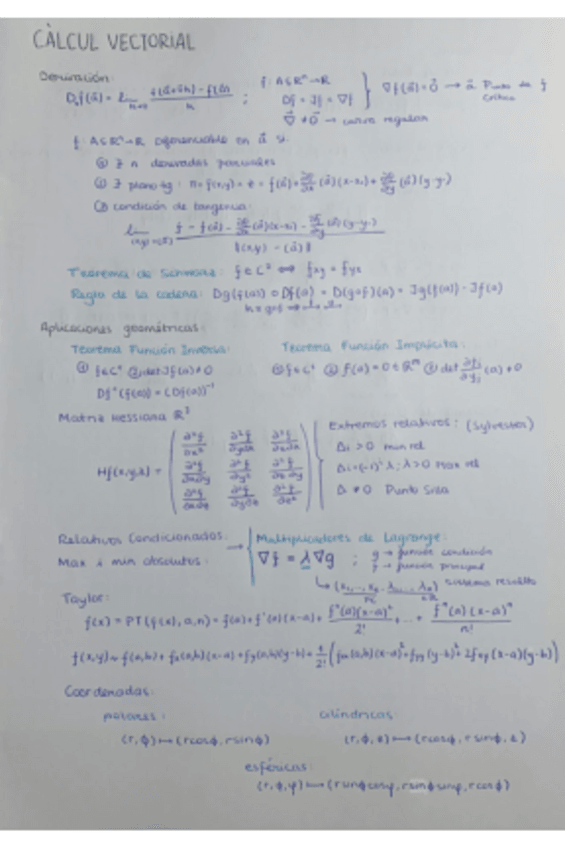 CÀLCUL VECTORIAL
Derivación:
f: A⊆Rⁿ→R
Df = Jf = ∇f
∇f(a⃗)=0⃗ → a⃗ Punto de f crítico
∇⃗ ≠ 0⃗ → curva regular
f: A⊆Rⁿ→R Diferenciable en a⃗ si:
① ∃ n derivadas parciales
② ∃ plano tg: π = f(x,y) = z = f(a⃗) + ∂f/∂x (a⃗)(x-x₀) + ∂f/∂y (a⃗)(y-y₀)
③ condición de tangencia:
Teorema de Schwarz: f∈C² ⟺ fxy = fyx
Regla de la cadena: Dg(f(a)) ∘ Df(a) = D(g∘f)(a) = Jg(f(a))·Jf(a)
Aplicaciones geométricas:
Teorema Función Inversa:
① f∈C¹ ② det Jf(a) ≠ 0
Df⁻¹(f(a)) = (Df(a))⁻¹
Teorema Función Implícita:
Matriz Hessiana R³
Hf(x,y,z) =
Extremos relativos: (Sylvester)
Δi > 0 min rel
Δ ≠ 0 Punto Silla
Relativos Condicionados:
Max i min absolutos:
→ Multiplicadores de Lagrange:
∇f = λ∇g ; g → función condición
f → función principal
sistema resuelto
Taylor:
f(x) = PT(f(x),a,n) = f(a) + f'(a)(x-a) + f''(a)(x-a)²/2! + ... + fⁿ(a)(x-a)ⁿ/n!
f(x,y) ≈ f(a,b) + fx(a,b)(x-a) + fy(a,b)(y-b) + 1/2! (fxx(a,b)(x-a)² + fyy(y-b)² + 2fxy(x-a)(y-b))
Coordenadas:
polares:
(r,ϕ) ↦ (rcosϕ, rsinϕ)
cilíndricas:
(r,ϕ,z) ↦ (rcosϕ, rsinϕ, z)
esféricas:
(r,ϕ,φ) ↦ (rsinϕcosφ, rsinϕsinφ, rcosϕ)